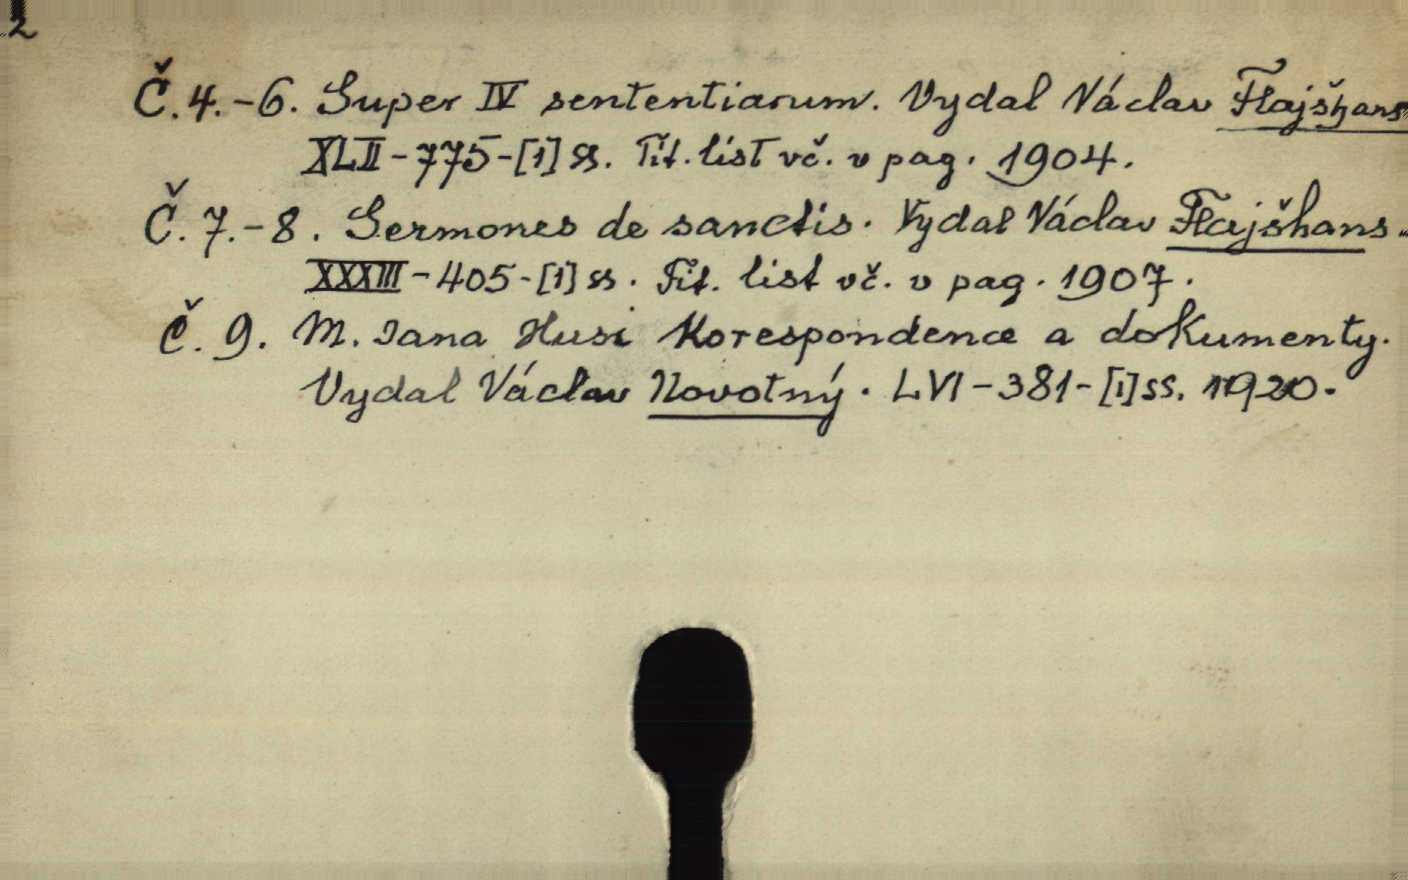 2
Č. 4.-6. Super IV sententiarum. Vydal Václav Flajšhans
XLII-775-[1] ss. Tit. list vč. v pag. 1904.
Č. 7.-8. Sermones de sanctis. Vydal Václav Flajšhans.
XXXIII-405-[1] ss. Tit. list vč. v pag. 1907.
Č. 9. M. Jana Husi Korespondence a dokumenty.
Vydal Václav Novotný. LVI-381-[1] ss. 1920.